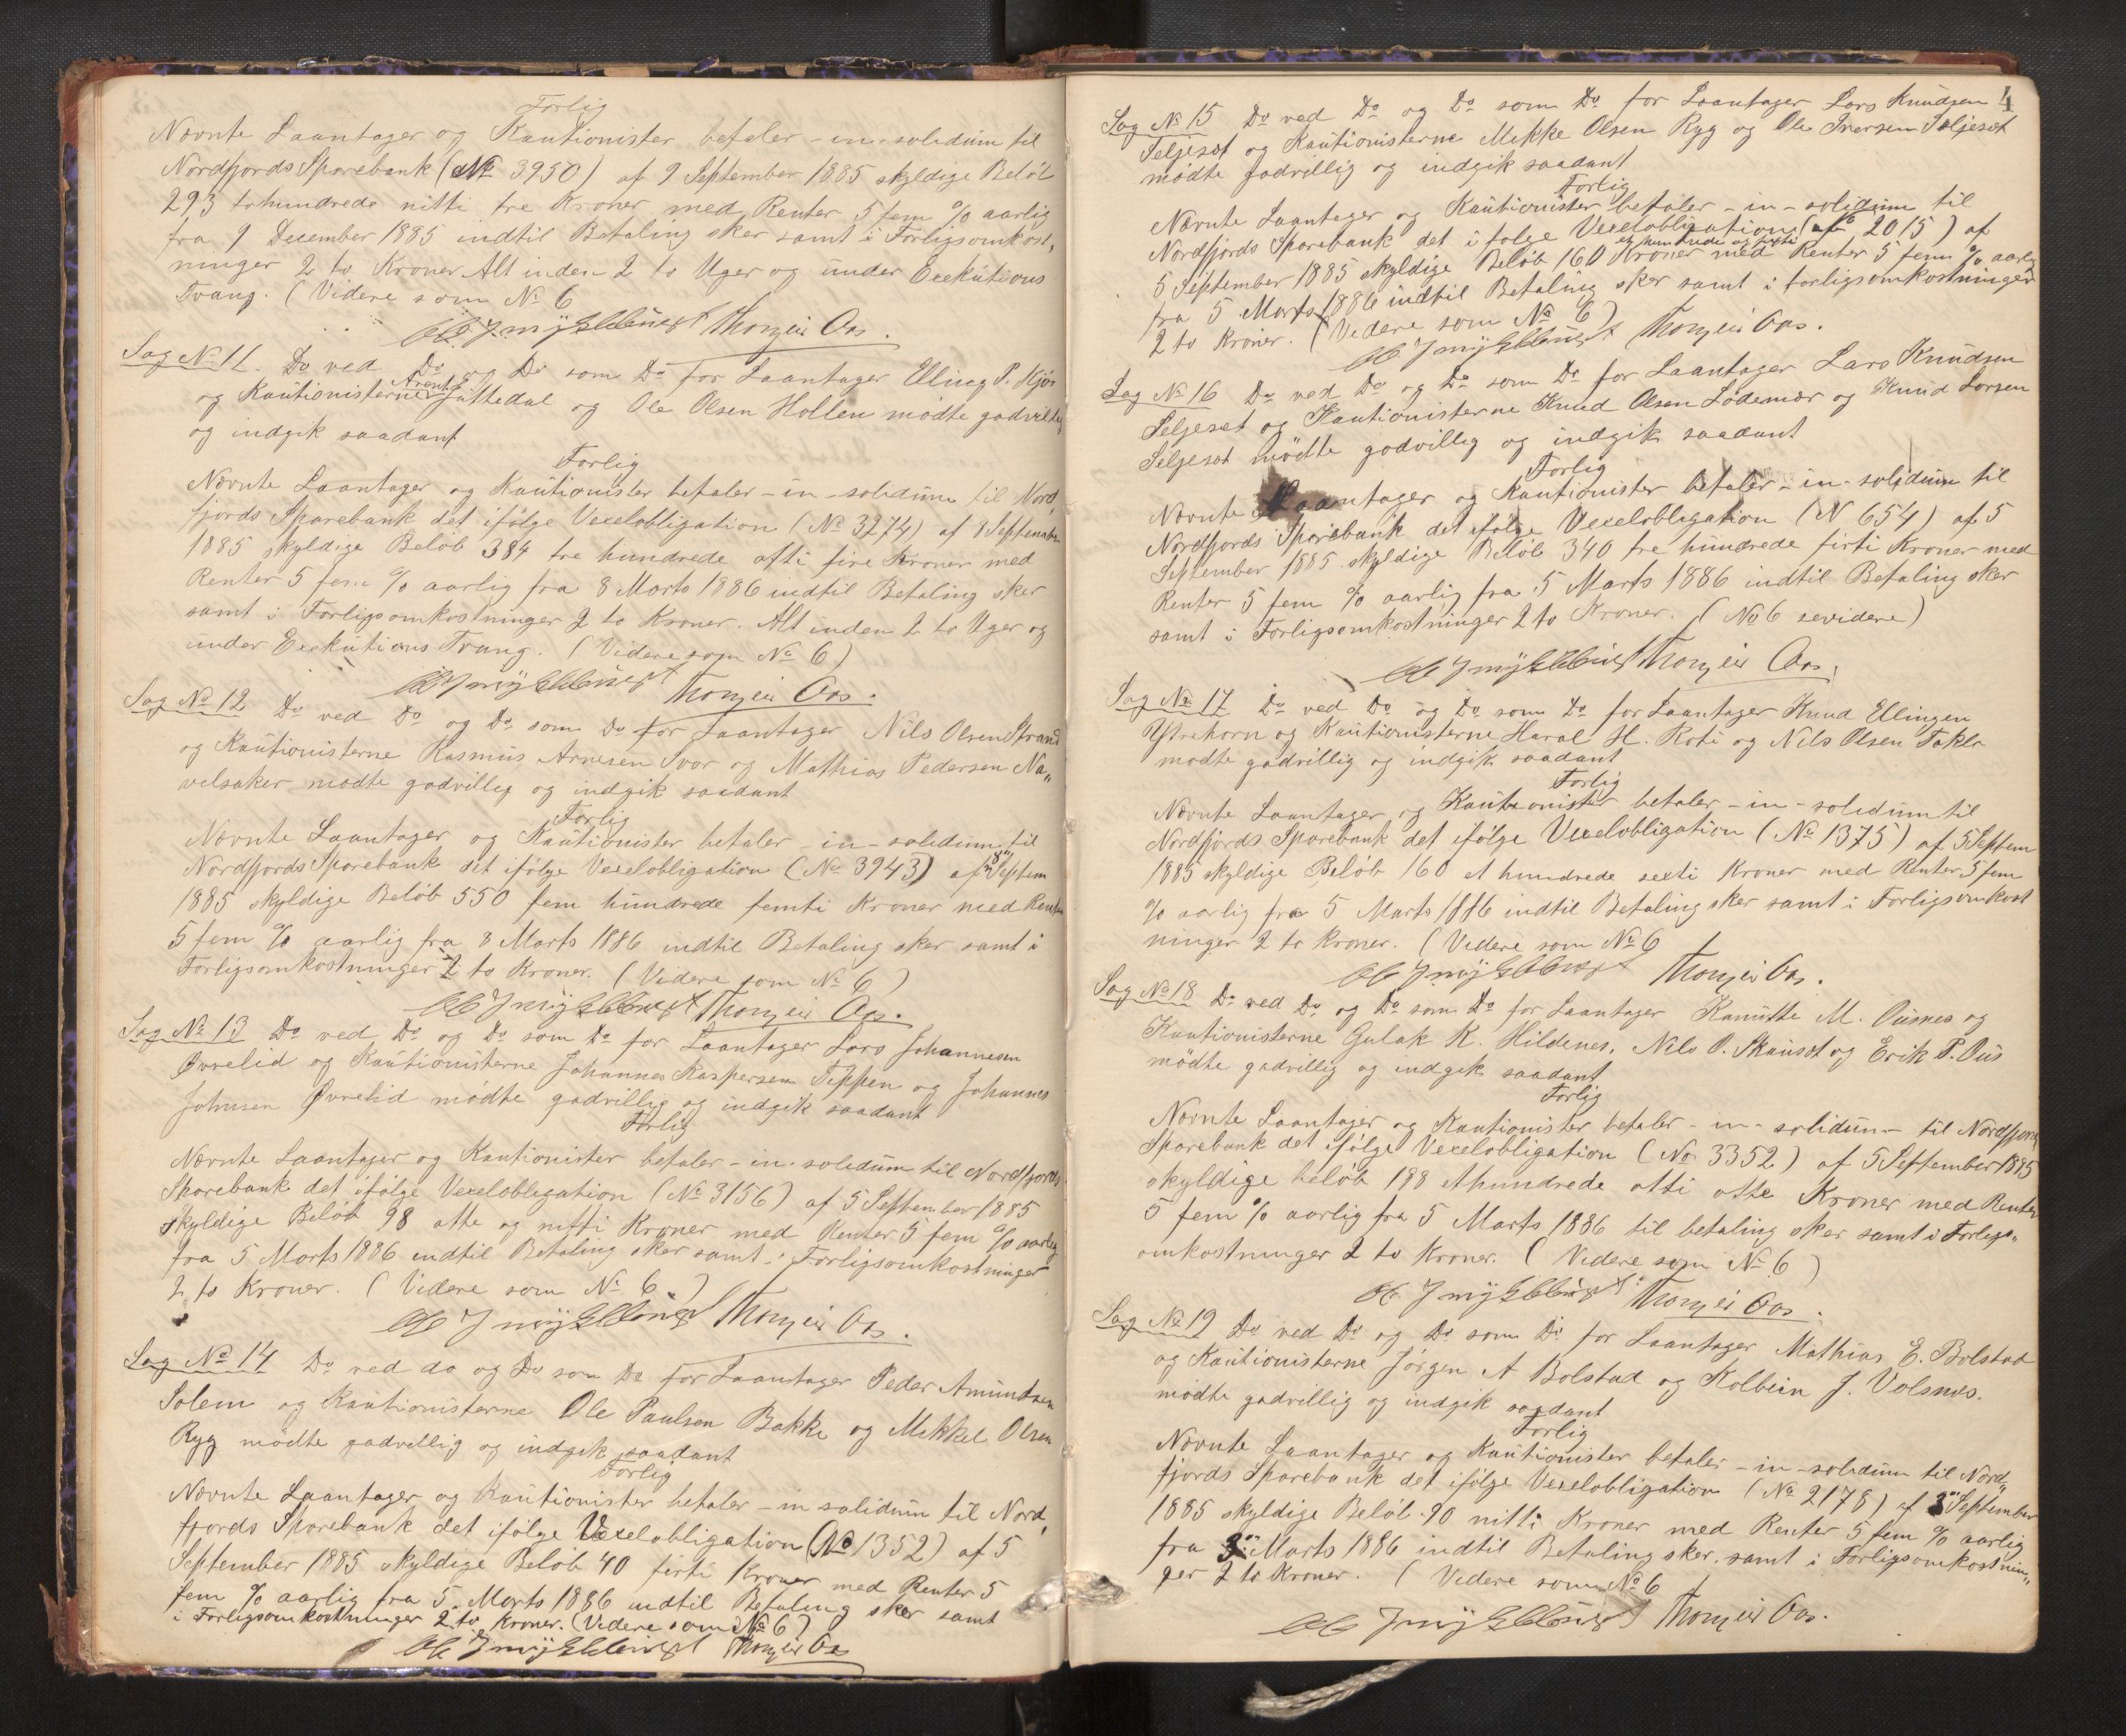 Forlig
Nævnte Laantager og Kautionister betaler - in - solidum til
Nordfjords Sparebank (No 3950) af 9 September 1885 skyldige Beløb
293 tohundrede nitti tre Kroner med Renter 5 fem % aarlig
fra 9 December 1885 indtil Betaling sker samt i Forligsomkost,
ninger 2 to Kroner Alt inden 2 to Uger og under Exekutions
Tvang. (Videre som No 6
Thomeis Aas.
Sag No 11. Do ved Do og Do som Do for Laantager Elling P. Hjør
og Kautionisterne Arent Guttedal og Ole Olsen Hollen mødte godvillig
og indgik saadant
Forlig
Nævnte Laantager og Kautionister betaler - in - solidum til Nord,
fjords Sparebank det ifølge Vexelobligation (No 3274) af 8 September
1885 skyldige Beløb 384 tre hundrede otti fire Kroner med
Renter 5 fem % aarlig fra 8 Marts 1886 indtil Betaling sker
samt i Forligsomkostninger 2 to Kroner. Alt inden 2 to Uger og
under Exekutions Tvang. (Videre som No 6)
Thomeis Aas.
Sag No 12 Do ved Do og Do som Do for Laantager Nils Olsen Strand
og Kautionisterne Rasmus Arnesen Svor og Mathias Pedersen Na„
velsaker mødte godvillig og indgik saadant
Forlig
Nævnte Laantager og Kautionister betaler - in - solidum til
Nordfjords Sparebank det ifølge Vexelobligation (No 3943) af "8" Septem
1885 skyldige Beløb 550 fem hundrede femti Kroner med Renter
5 fem % aarlig fra 8 Marts 1886 indtil Betaling sker samt i
Forligsomkostninger 2 to Kroner. (Videre som No 6)
Thomeis Aas.
Sag No 13 Do ved Do og Do som Do for Laantager Lars Johannesen
Øvrelid og Kautionisterne Johannes Kaspersen Tippen og Johannes
Johnsen Øvrelid mødte godvillig og indgik saadant
Forlig
Nævnte Laantager og Kautionister betaler - in - solidum til Nordfjords
Sparebank det ifølge Vexelobligation (No 3156) af 5 September 1885
skyldige Beløb 98 otte og nitti Kroner med Renter 5 fem % aarlig
fra 5 Marts 1886 indtil Betaling sker samt i Forligsomkostninger
2 to Kroner. (Videre som No 6)
Thomeis Aas.
Sag No 14 Do ved do og Do som Do for Laantager Peder Amundsen
Solem og Kautionisterne Ole Paulsen Bakke og Mikkel Olsen
Ryg mødte godvillig og indgik saadant
Forlig
Nævnte Laantager og Kautionister betaler - in solidum til Nord,
fjords Sparebank det ifølge Vexelobligation (No 1352) af 5
September 1885 skyldige Beløb 40 firti Kroner med Renter 5
fem % aarlig fra 5. Marts 1886 indtil Betaling sker samt
i Forligsomkostninger 2 to Kroner. (Videre som No 6)
Thomeis Aas
4
Sag No 15 Do ved Do og Do som Do for Laantager Lars Knudsen
Seljeset og Kautionisterne Mikke Olsen Ryg og Ole Iversen Seljeset
mødte godvillig og indgik saadant
Forlig
Nævnte Laantager og Kautionister betaler - in - solidum til
Nordfjords Sparebank det ifølge Vexelobligation (No 2015) af
et hundrede og sexti
5 September 1885 skyldige Beløb 160 Kroner med Renter 5 fem % aarlig
fra 5 Marts 1886 indtil Betaling sker samt i forligsomkostninger
2 to Kroner. (Videre som No 6)
Thomeis Aas.
Sag No 16 Do ved Do og Do som Do for Laantager Lars Knudsen
Seljeset og Kautionisterne Knud Olsen Lødemær og Knud Larsen
Seljeset mødte godvillig og indgik saadant
Forlig
Nævnte Laantager og Kautionister betaler - in - solidum til
Nordfjords Sparebank det ifølge Vexelobligation (N 654) af 5
September 1885 skyldige Beløb 340 tre hundrede firti Kroner med
Renter 5 fem % aarlig fra 5 Marts 1886 indtil Betaling sker
samt i Forligsomkostninger 2 to Kroner. (No 6 sevidere)
Thomeis Aas.
Sag No 17 Do ved Do og Do som Do for Laantager Knud Ellingen
Ytrehorn og Kautionisterne Haral H. Roti og Nils Olsen Takle
mødte godvillig og indgik saadant
Forlig
Nævnte Laantager og Kautionister betaler - in - solidum til
Nordfjords Sparebank det ifølge Vexelobligation (No 1375) af 5 Septem
1885 skyldige Beløb 160 et hundrede sexti Kroner med Renter 5 fem
% aarlig fra 5 Marts 1886 indtil Betaling sker samt i Forligsomkost
ninger 2 to Kroner. (Videre som No 6
Thomeis Aas.
Sag No 18 Do ved Do og Do som Do for Laantager Kamitte M. Ousnes og
Kautionisterne Gulak K. Hildenes, Nils O. Skauset og Erik P. Ous
mødte godvillig og indgik saadant
Forlig
Nævnte Laantager og Kautionister betaler - in - solidum - til Nordfjords
Sparebank det ifølge Vexelobligation (No 3352) af 5 September 1885
skyldige beløb 188 ethundrede otti otte Kroner med Renter
5 fem % aarlig fra 5 Marts 1886 til betaling sker samt i Forligs„
omkostninger 2 to Kroner. (Videre som No 6)
Thomeis Aas.
Sag No 19 Do ved Do og Do som Do for Laantager Mathias E. Bolstad
og Kautionisterne Jørgen A Bolstad og Kolbein J. Volsnes.
mødte godvillig og indgik saadant
Forlig
Nævnte Laantager og Kautionister betaler - in - solidum til Nord„
fjords Sparebank det ifølge Vexelobligation (No 2178) af 3 September
1885 skyldige Beløb 90 nitti Kroner med Renter 5 fem % aarlig
fra 3 Marts 1886 indtil Betaling sker. samt i Forligsomkostnin„
ger 2 to Kroner. (Videre som No 6
Thomeis Aas.